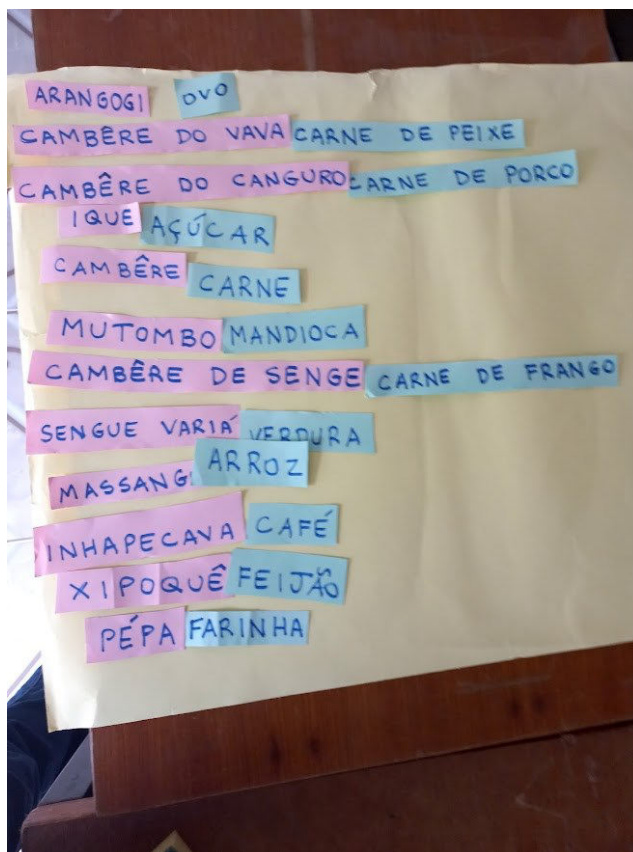 ARANGOGI OVO
CAMBÊRE DO VAVA CARNE DE PEIXE
CAMBÊRE DO CANGURO CARNE DE PORCO
IQUE AÇÚCAR
CAMBÊRE CARNE
MUTOMBO MANDIOCA
CAMBÊRE DE SENGE CARNE DE FRANGO
SENGUE VARIÁ VERDURA
MASSANG ARROZ
INHAPECAVA CAFÉ
XIPOQUÊ FEIJÃO
PÉPA FARINHA